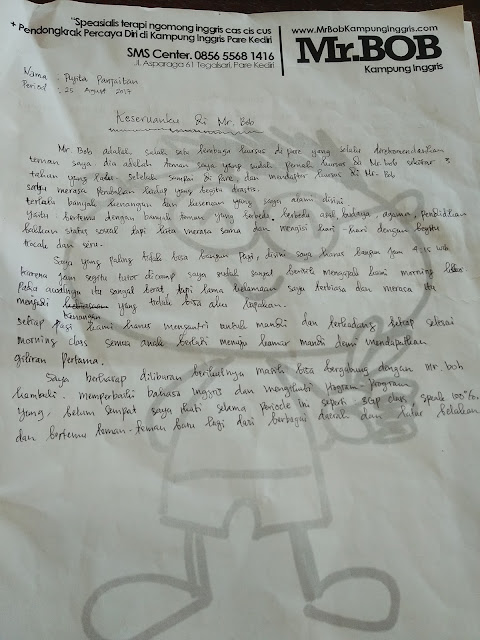 "Speasialis terapi ngomong inggris cas cis cus
+ Pendongkrak Percaya Diri di Kampung Inggris Pare Kediri
SMS Center. 0856 5568 1416
Jl. Asparaga 61 Tegalsari, Pare Kediri
www.MrBobKampungInggris.com
Mr.BOB
Kampung Inggris
Nama : Pujita Panjaitan
Period : 25 Agust 2017
Keseruanku di Mr. Bob
Mr. Bob adalah salah satu lembaga kursus di pare yang selalu direkomendasikan
teman saya dia adalah teman saya yang sudah pernah kursus di Mr. bob sekitar 3
tahun yang lalu. Setelah sampai di Pare dan mendaftar kursus di Mr. Bob
saya merasa perubahan yang begitu drastis.
terlalu banyak kenangan dan yang saya alami disini
yaitu bertemu dengan banyak teman yang berbeda. berbeda asal, budaya, agama, pendidikan
bahkan status sosial tapi kita merasa sama dan mengisi hari-hari dengan begitu
kocak dan seru.
Saya yang paling tidak bisa bangun pagi, disini saya harus bangun jam 4.15 wib
karena jam segitu tutor di camp saya sudah sangat berisik mengajak kami morning class
Pada awalnya itu sangat berat, tapi lama kelamaan saya terbiasa dan merasa itu
menjadi kenangan yang tidak bisa aku lupakan.
setiap pagi kami harus mengantri untuk mandi dan terkadang setiap selesai
morning class semua anak berlari menuju kamar mandi demi mendapatkan
giliran pertama.
Saya berharap diliburan berikutnya masih bisa bergabung dengan Mr. bob
kembali. memperbaiki bahasa Inggris dan mengikuti Program-Program
yang belum sempat saya ikuti selama periode ini seperti SGP class speak 100%.
dan bertemu teman-teman baru lagi dari berbagai daerah dan